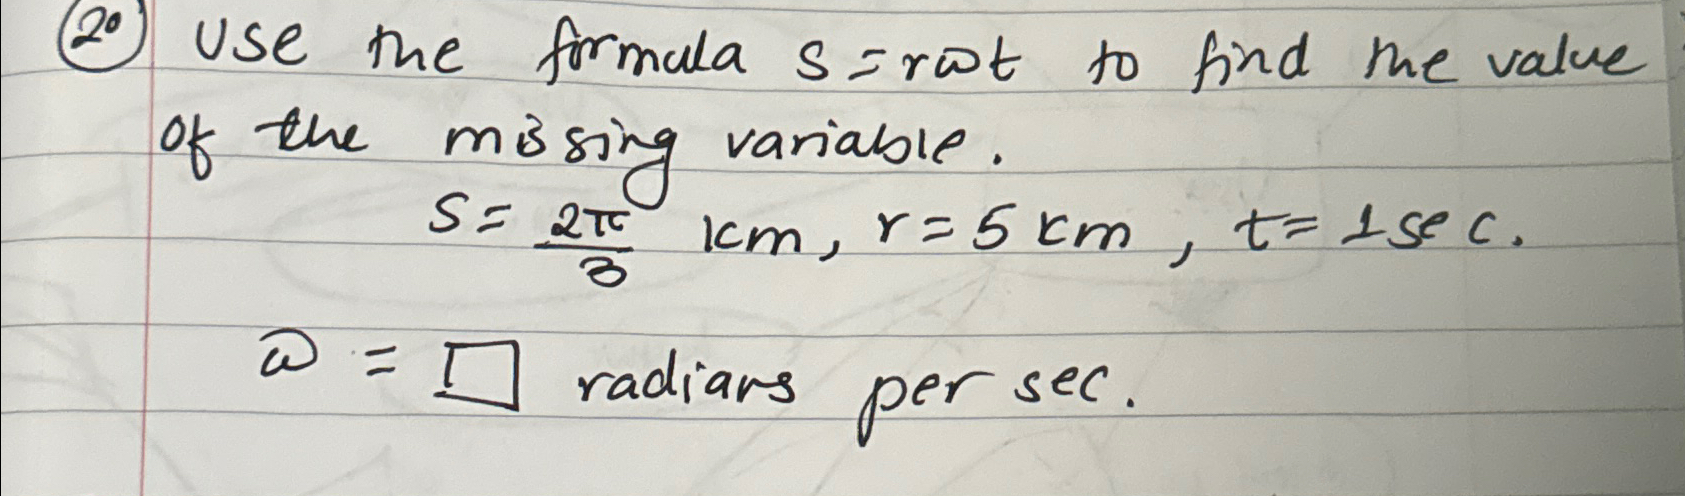 20 Use the formula s = rωt to find the value
of the missing variable.
s = 2π/3 km, r = 5 km, t = 1 sec.
ω = □ radians per sec.